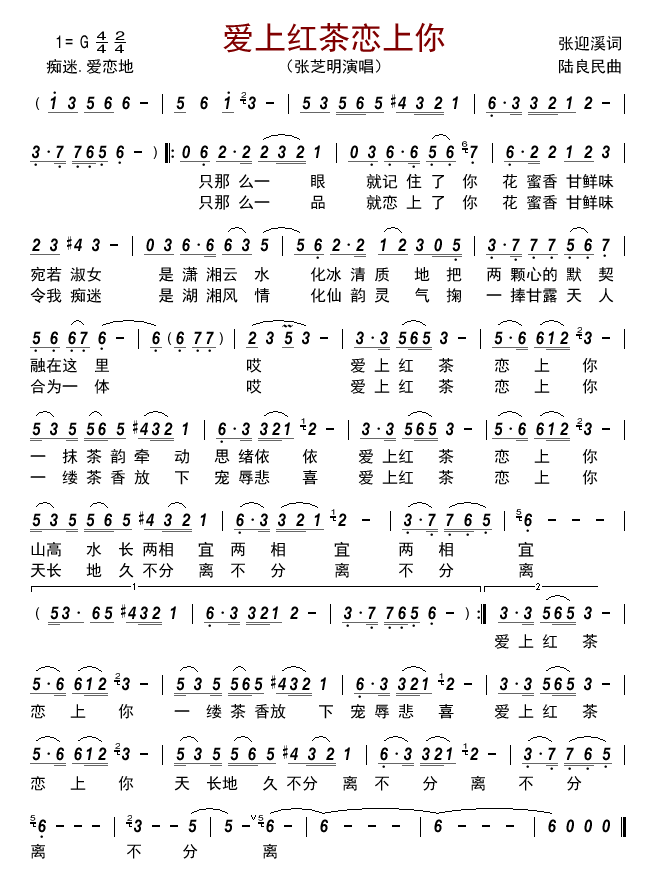 爱上红茶恋上你
1= G 4/4 2/4
痴迷.爱恋地
（张芝明演唱）
张迎溪词
陆良民曲
( 1 3 5 6 6 − | 5 6 1 2 3 − | 5 3 5 1 6 5 6 5 #4 3 2 1 | 6 · 3 3 2 1 2 − |
3 · 7 7 6 5 6 − ) ‖: 0 6 2 · 2 2 3 2 1 | 0 3 6 · 6 5 6 6 7 | 6 · 2 2 1 2 3 |
只那 么一 眼 就记 住 了 你 花 蜜香 甘鲜味
只那 么一 品 就恋 上 了 你 花 蜜香 甘鲜味
2 3 #4 3 − | 0 3 6 · 6 6 3 5 | 5 6 2 · 2 1 2 3 0 5 | 3 · 7 7 7 5 6 7 |
宛若 淑女 是 潇 湘云 水 化冰 清 质 地 把 两 颗心的 默 契
令我 痴迷 是 湖 湘风 情 化仙 韵 灵 气 掬 一 捧甘露 天 人
5 6 6 7 6 − | 6 ( 6 7 7 ) | 2 3 5 3 − | 3 · 3 5 6 5 3 − | 5 · 6 6 1 2 2 3 − |
融在这 里 哎 爱 上 红 茶 恋 上 你
合为一 体 哎 爱 上 红 茶 恋 上 你
5 3 5 5 6 5 #4 3 2 1 | 6 · 3 3 2 1 1 2 − | 3 · 3 5 6 5 3 − | 5 · 6 6 1 2 2 3 − |
一 抹 茶 韵 牵 动 思 绪依 依 爱 上 红 茶 恋 上 你
一 缕 茶 香 放 下 宠 辱悲 喜 爱 上 红 茶 恋 上 你
5 3 5 5 6 5 #4 3 2 1 | 6 · 3 3 2 1 1 2 − − | 3 · 7 7 6 5 | 5 6 − − |
山高 水 长 两相 宜 两 相 宜 两 相 宜
天长 地 久 不分 离 不 分 离 不 分 离
1 2
( 5 3 · 6 5 #4 3 2 1 | 6 · 3 3 2 1 2 − | 3 · 7 7 6 5 6 − ) :‖ 3 · 3 5 6 5 3 − |
爱 上 红 茶
5 · 6 6 1 2 2 3 − | 5 3 5 5 6 5 #4 3 2 1 | 6 · 3 3 2 1 1 2 − | 3 · 3 5 6 5 3 − |
恋 上 你 一 缕 茶 香放 下 宠 辱 悲 喜 爱 上 红 茶
5 · 6 6 1 2 2 3 − | 5 3 5 5 6 5 #4 3 2 1 | 6 · 3 3 2 1 1 2 − | 3 · 7 7 6 5 |
恋 上 你 天 长地 久 不分 离 不 分 离 不 分
5 6 − − − | 2 3 − − 5 | 5 − ∨ 5 6 − | 6 − − − | 6 − − − | 6 0 0 0 ‖
离 不 分 离